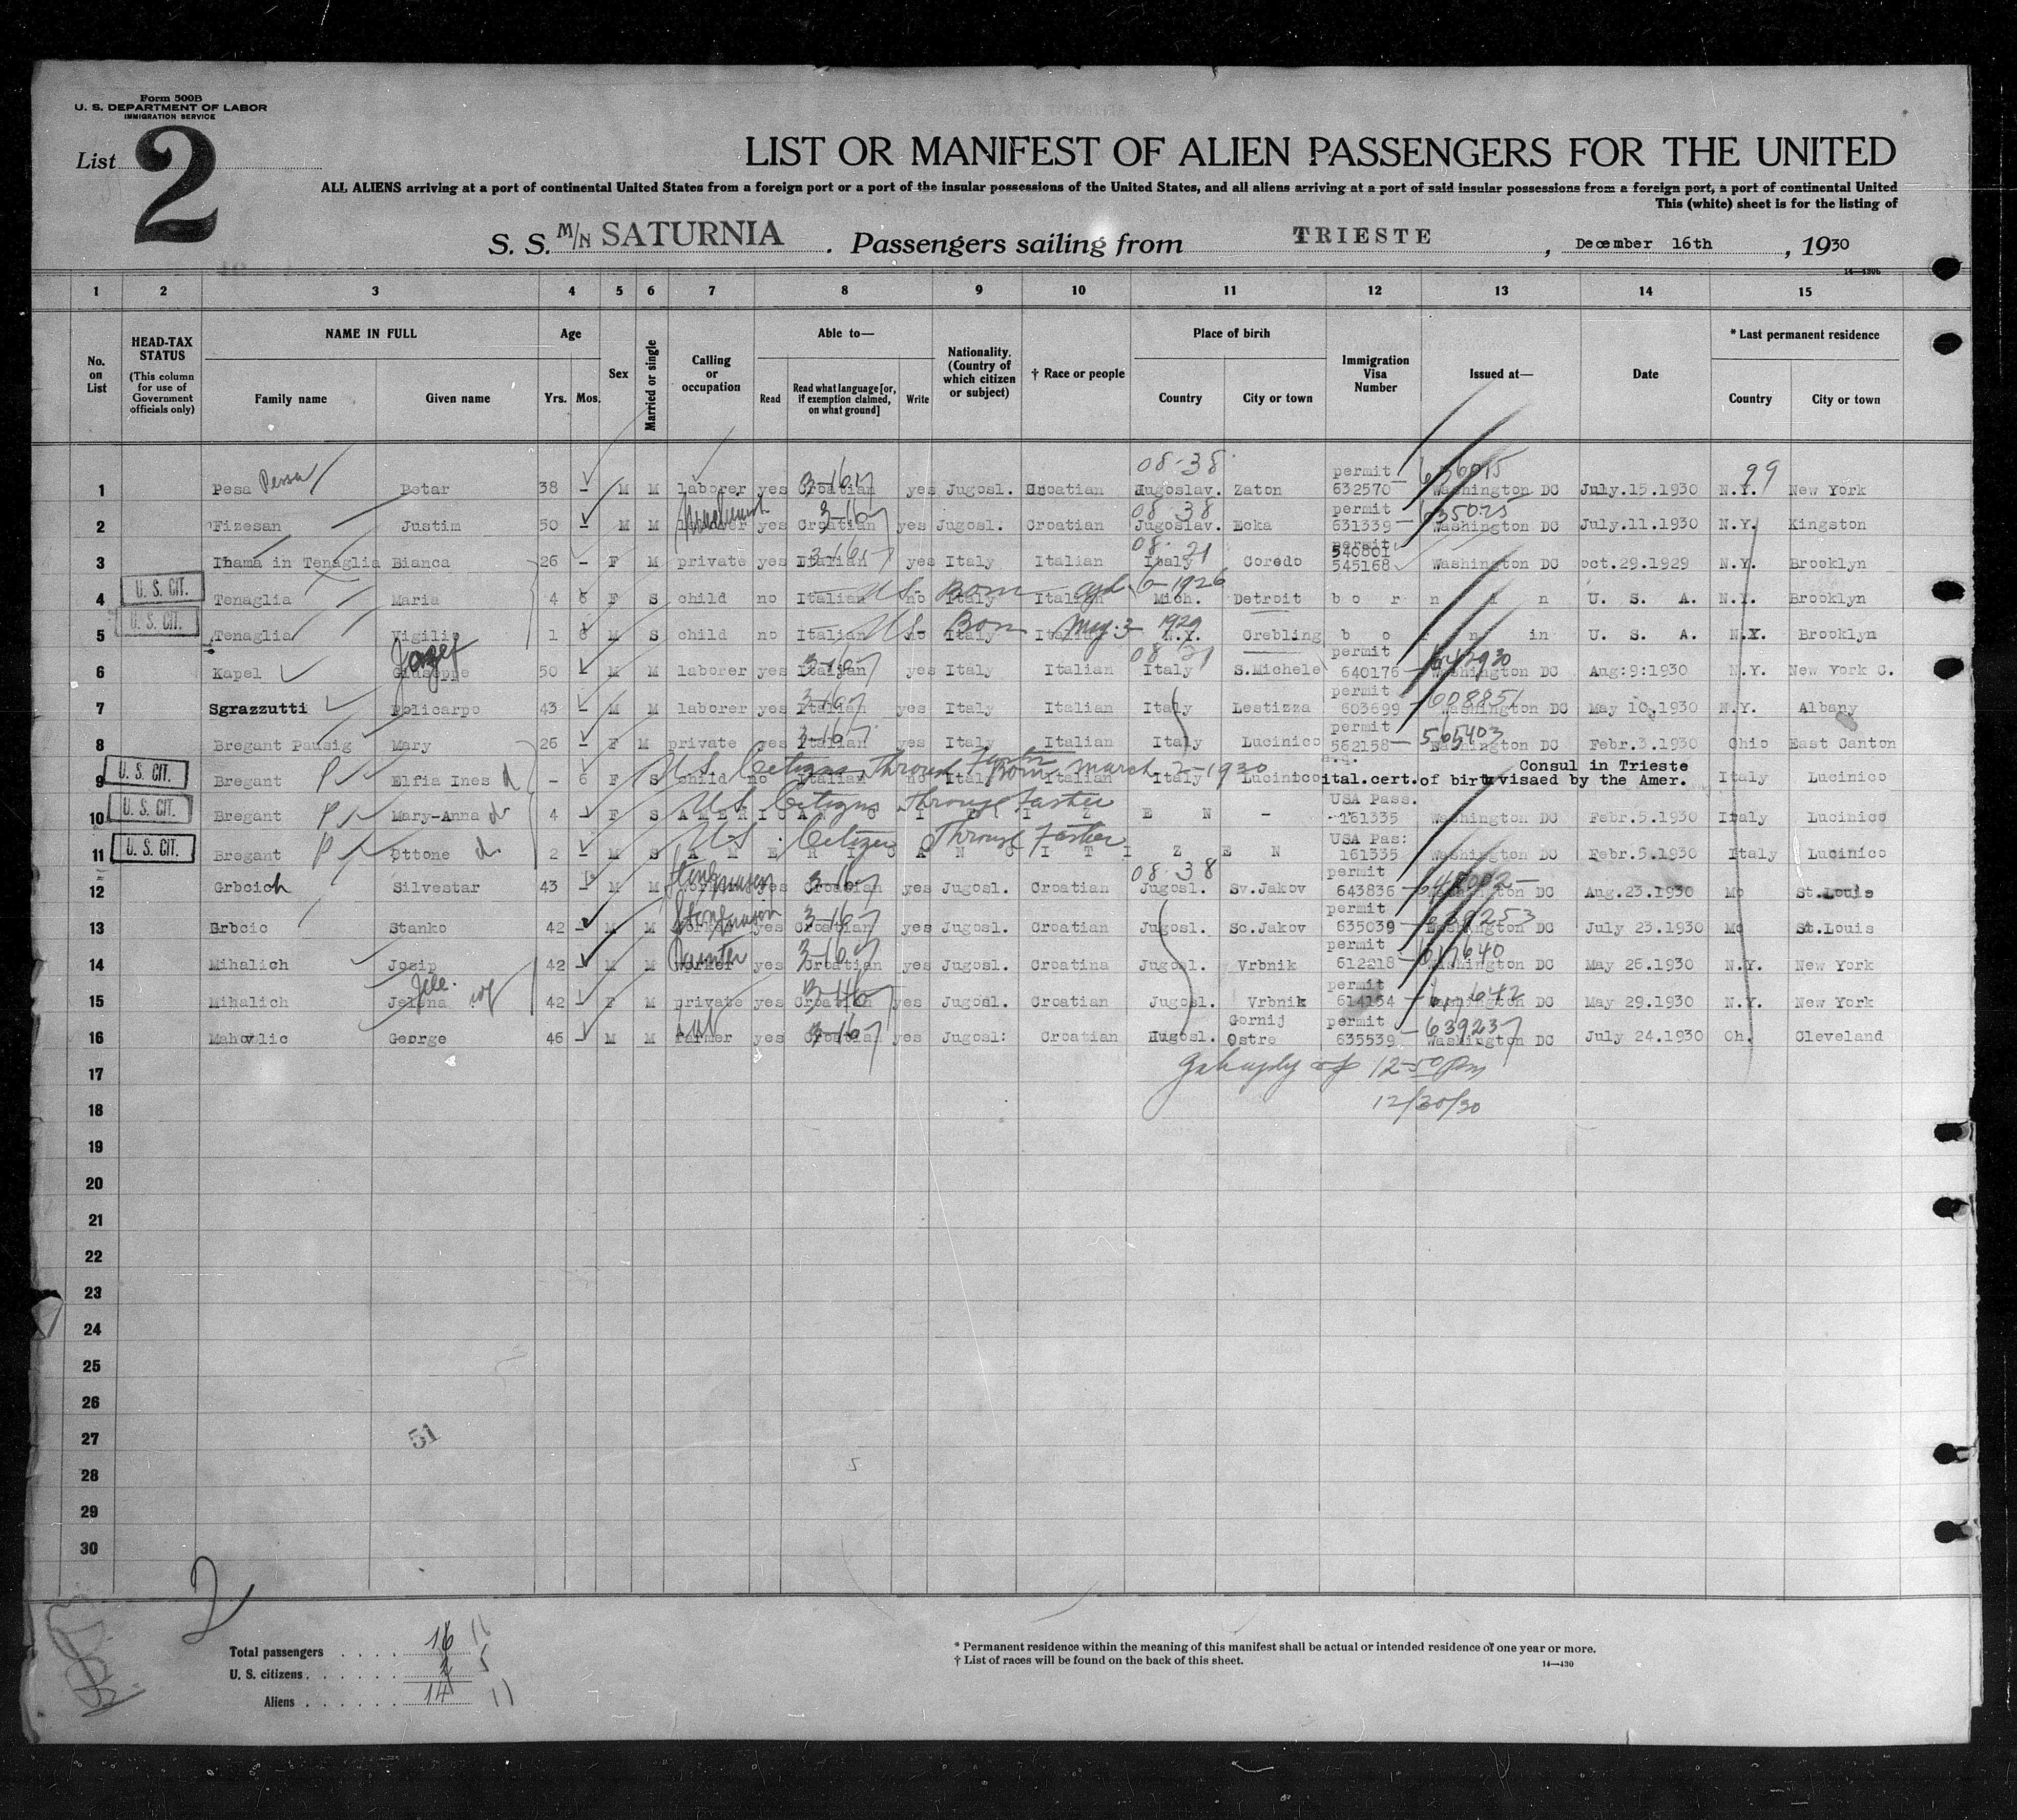 Form 500B
U. S. DEPARTMENT OF LABOR
IMMIGRATION SERVICE
List 2
LIST OR MANIFEST OF ALIEN PASSENGERS FOR THE UNITED
ALL ALIENS arriving at a port of continental United States from a foreign port or a port of the insular possessions of the United States, and all aliens arriving at a port of said insular possessions from a foreign port, a port of continental United
This (white) sheet is for the listing of
S. S. M/N SATURNIA . Passengers sailing from TRIESTE , December 16th , 1930
14—430b
1 2 3 4 5 6 7 8 9 10 11 12 13 14 15
No. on List
HEAD-TAX STATUS (This column for use of Government officials only)
NAME IN FULL Family name Given name
Age Yrs. Mos.
Sex
Married or single
Calling or occupation
Able to— Read Read what language [or, if exemption claimed, on what ground] Write
Nationality. (Country of which citizen or subject)
† Race or people
Place of birth Country City or town
Immigration Visa Number
Issued at—
Date
* Last permanent residence Country City or town
08-38 permit 636015 99
1 Pesa Pessa Petar 38 – M M laborer yes Croatian 3-167 yes Jugosl. Croatian Jugoslav. Zaton 632570 Washington DC July.15.1930 N.Y. New York
08 38 permit
2 Fizesan Justim 50 – M M laborer yes Croatian 3-167 yes Jugosl. Croatian Jugoslav. Ecka 631339 635025 Washington DC July.11.1930 N.Y. Kingston
08- 21 permit 540801
3 Ihama in Tenaglia Bianca 26 – F M private yes Italian 3-167 yes Italy Italian Italy Coredo 545168 Washington DC oct.29.1929 N.Y. Brooklyn
4 U. S. CIT. Tenaglia Maria 4 6 F S child no Italian US. no Born Italy Italian 6-1926 Mich. Detroit born in U. S. A. N.Y. Brooklyn
5 U. S. CIT. Tenaglia Vigilio 1 6 M S child no Italian US. no Born Italy Italian May-3 1929 N.Y. Crebling born in U. S. A. N.Y. Brooklyn
Jozef 08 21 permit
6 Kapel Giuseppe 50 – M M laborer yes Italian 3-167 yes Italy Italian Italy S.Michele 640176 642930 Washington DC Aug:9:1930 N.Y. New York C.
permit
7 Sgrazzutti Policarpo 43 – M M laborer yes Italian 3-167 yes Italy Italian Italy Lestizza 603699 608851 Washington DC May 10.1930 N.Y. Albany
permit
8 Bregant Pausig Mary 26 – F M private yes Italian 3-167 yes Italy Italian Italy Lucinico 562158 565403 Washington DC Febr.3.1930 Ohio East Canton
US Citizen Through Father Born March 2-1930 Consul in Trieste
9 U. S. CIT. Bregant Elfia Ines d – 6 F S child no Italian no Italy Italian Italy Lucinico ital.cert.of birth visaed by the Amer. Italy Lucinico
US Citizens Through Father USA Pass.
10 U. S. CIT. Bregant Mary-Anna d 4 – F S AMERICAN CITIZEN – 161335 Washington DC Febr.5.1930 Italy Lucinico
US Citizen Through Father USA Pas:
11 U. S. CIT. Bregant Ottone d. 2 – M S AMERICAN CITIZEN 161335 Washington DC Febr.5.1930 Italy Lucinico
08 38 permit
12 Grbcich Silvestar 43 – M M yes Croatian 3-167 yes Jugosl. Croatian Jugosl. Sv.Jakov 643836 Washington DC Aug.23.1930 Mo St.Louis
permit
13 Grbcic Stanko 42 – M M worker yes Croatian 3-167 yes Jugosl. Croatian Jugosl. Sc.Jakov 635039 Washington DC July 23.1930 Mo St.Louis
Painter permit
14 Mihalich Josip 42 – M M worker yes Croatian 3-167 yes Jugosl. Croatina Jugosl. Vrbnik 612218 617640 Washington DC May 26.1930 N.Y. New York
permit
15 Mihalich Jelena 42 – F M private yes Croatian yes Jugosl. Croatian Jugosl. Vrbnik 614154 Washington DC May 29.1930 N.Y. New York
Gornij permit
16 Mahovlic George 46 – M M farmer yes Croatian 3-167 yes Jugosl: Croatian Jugosl. Ostre 635539 639237 Washington DC July 24.1930 Oh. Cleveland
17 12-50 Pm
18 12/30/30
19
20
21
22
23
24
25
26
27
51
28
29
30
2
Total passengers . . . . 16 16
U. S. citizens . . . . . . 5
Aliens . . . . . . 14 11
* Permanent residence within the meaning of this manifest shall be actual or intended residence of one year or more.
† List of races will be found on the back of this sheet.
14—430